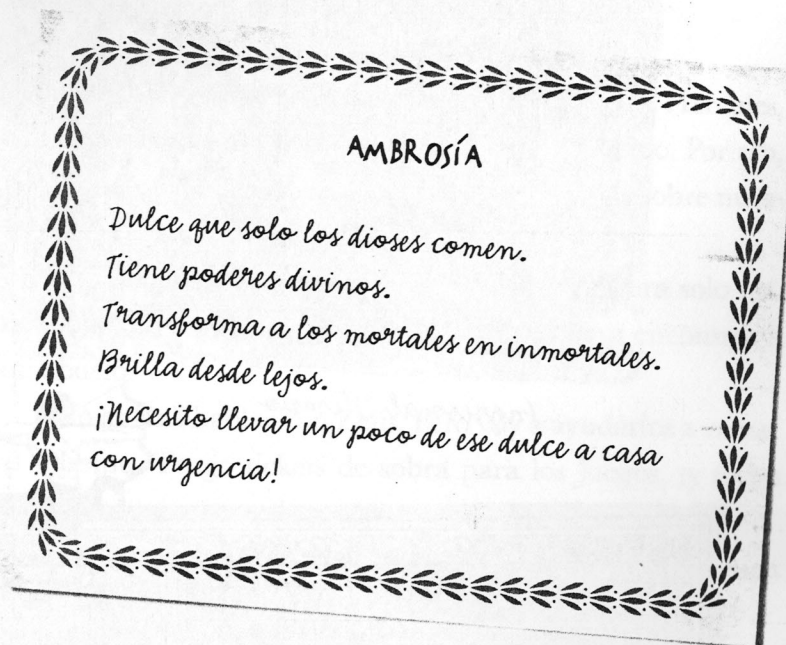 AMBROSÍA
Dulce que solo los dioses comen.
Tiene poderes divinos.
Transforma a los mortales en inmortales.
Brilla desde lejos.
¡Necesito llevar un poco de ese dulce a casa
con urgencia!